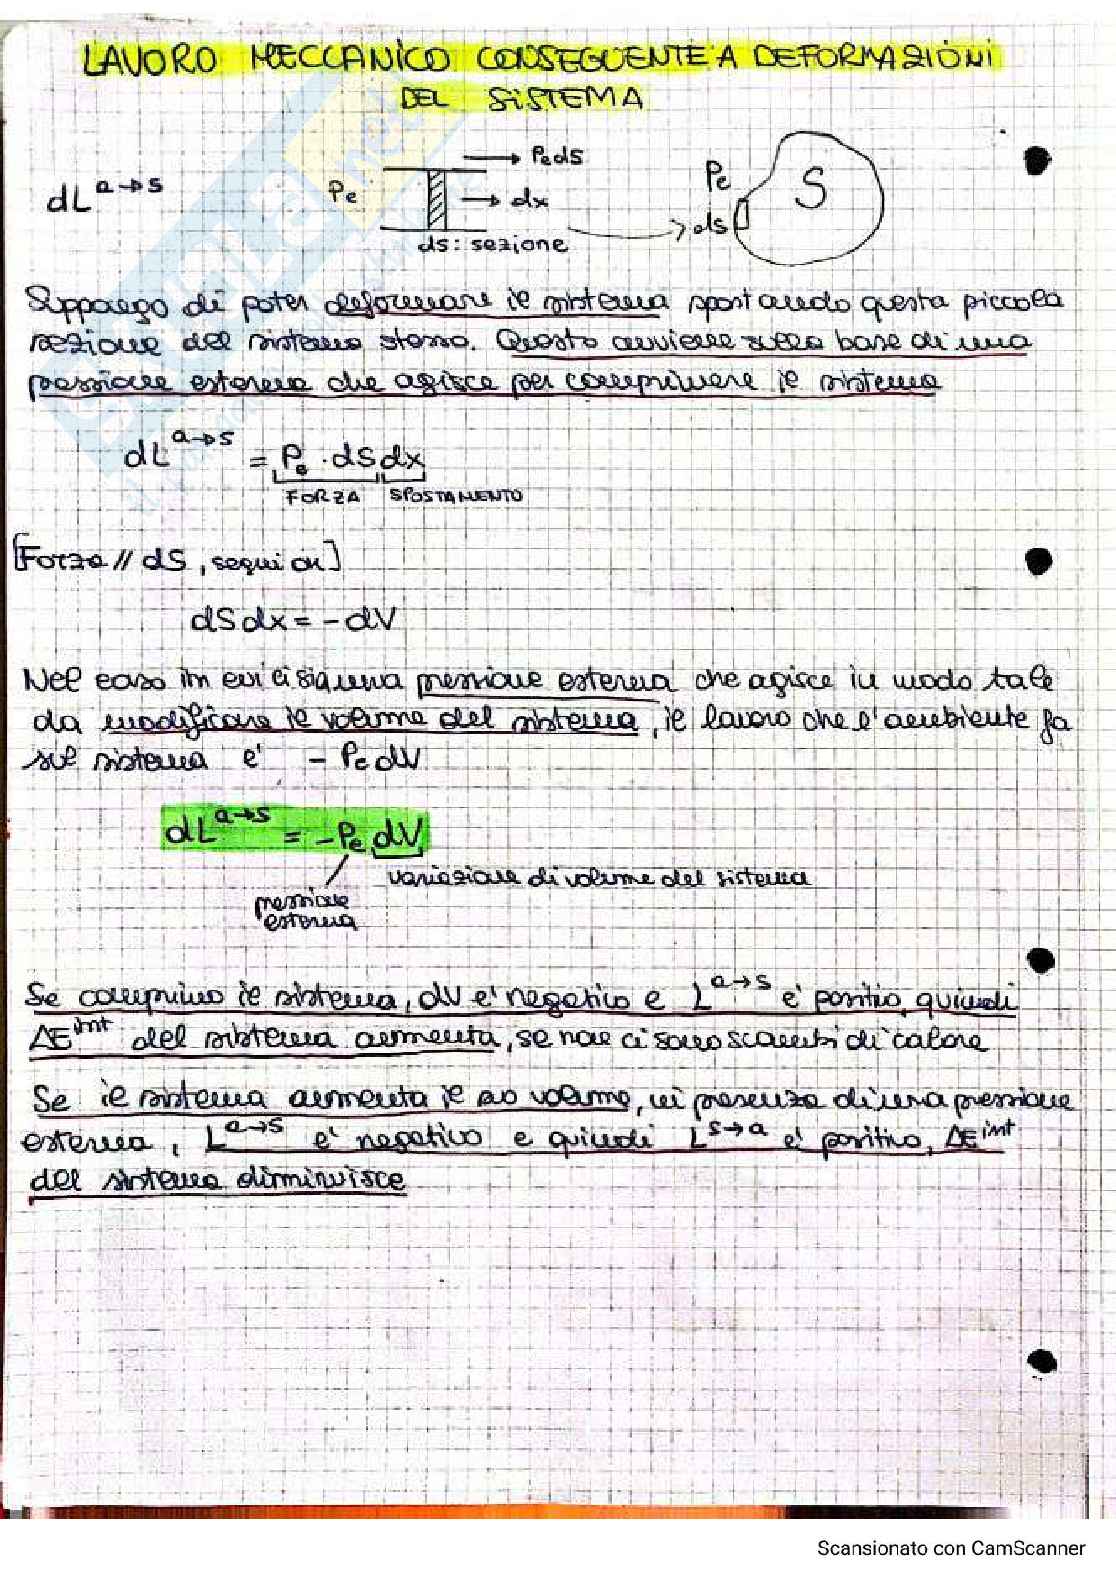 LAVORO MECCANICO CONSEGUENTE A DEFORMAZIONI
DEL SISTEMA
dL^{a→s}
Pe
Peds
dx
ds: sezione
Pe
ds
S
Suppongo di poter deformare il sistema spostando questa piccola
sezione del sistema stesso. Questo avviene sulla base di una
pressione esterna che agisce per comprimere il sistema
dL^{a→s} = Pe · dS dx
FORZA SPOSTAMENTO
[Forza // dS,
dS dx = - dV
Nel caso in cui ci sia una pressione esterna che agisce in modo tale
da modificare il volume del sistema, il lavoro che l'ambiente fa
sul sistema e' - Pe dV
dL^{a→s} = - Pe dV
variazione di volume del sistema
pressione
esterna
Se comprimo il sistema, dV e' negativo e L^{a→s} e' positivo, quindi
ΔE^{int} del sistema aumenta, se non ci sono scambi di calore
Se il sistema aumenta il suo volume, in presenza di una pressione
esterna, L^{a→s} e' negativo e quindi L^{s→a} e' positivo, ΔE^{int}
del sistema diminuisce
Scansionato con CamScanner